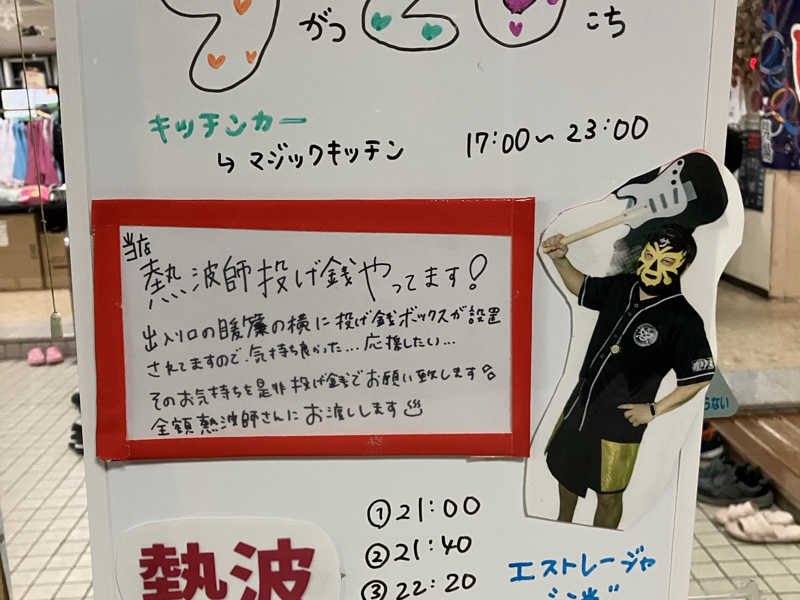 がつ こち
キッチンカー
↳ マジックキッチン 17:00~23:00
当店
熱波師投げ銭やってます!
出入り口の暖簾の横に投げ銭ボックスが設置
されてますので、気持ち良かった...応援したい...
そのお気持ちを是非投げ銭でお願い致します
全額熱波師さんにお渡しします♨
① 21:00
② 21:40
③ 22:20
熱波
エストレージャ
うない